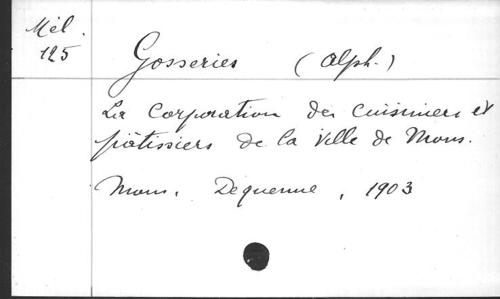 Mél.
125
Gosseries (Alph.)
La Corporation des Cuisiniers et
pâtissiers de la Ville de Mons.
Mons, Dequenne, 1903